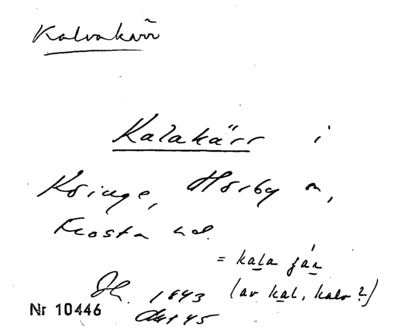 Kalvakärr
Kalakärr i
Kringe, Hörby sn,
Frosta hd.
= kala
(av kal, kalv?)
1843
Nr 10446